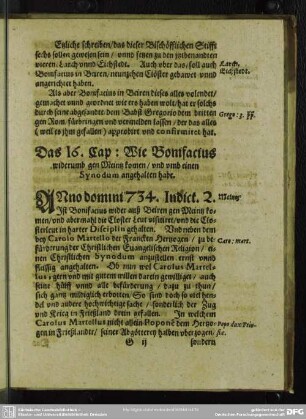 Etzliche schreiben/ das dieser Bischöfflichen Stifft
sechs sollen gewesen sein/ vnnd setzen zu den zuvorbenandten
vieren/ Laich vnnd Eichstedt. Auch vber das/ soll auch
Bonifacius in Beiren/ neuntzehen Clöster gebawet vnnd
angerichtet haben.
Laich.
Eichstedt.
Als aber Bonifacius in Beiren dieses alles volendet/
gemachet vnnd geordnet wie ers haben wolt/ hat er solchs
durch seine abgesandten/ dem Babst Gregorio dem dritten
gen Rom fürbringen vnd vermelden lassen/ der das alles
(weil es ihm gefallen) approbirt vnd confirmiret hat.
Grego: 3. ff.
Das 16. Cap: Wie Bonifacius
widerumb gen Meintz komen/ vnd vmb einen
Synodum angehalten habt.
ANno domini 734. Indict. 2.
Ist Bonifacius wider auß Beiren gen Meintz ko-
men/ vnd
Meintz
in harter Disciplin gehalten. Vnd neben dem
bey Carolo Martello der Francken Hertzogen/ zu be-
fürderung der Christlichen Euangelischen Religion/ ei-
nen Christlichen Synodum anzustellen ernst vnnd
fleissig angehalten. Ob nun wol Carolus Martel-
lus/ gern vnd mit gutem willen darein gewilliget/ auch
seine hülff vnnd alle beförderung/ dazu zu thun/
sich gantz mildiglich erbotten. So sind doch so viel hen-
del vnd andere hochwichtige sache/ sonderlich der Zug
vnd Krieg in Frießland drein gefallen. In welchem
Carolus Martellus nicht allein Poponẽ dem Hertzo-
gen in Frießlandt/ seiner Abgötterey halben vberzogen/
Caro: mart.
G ij
sondern